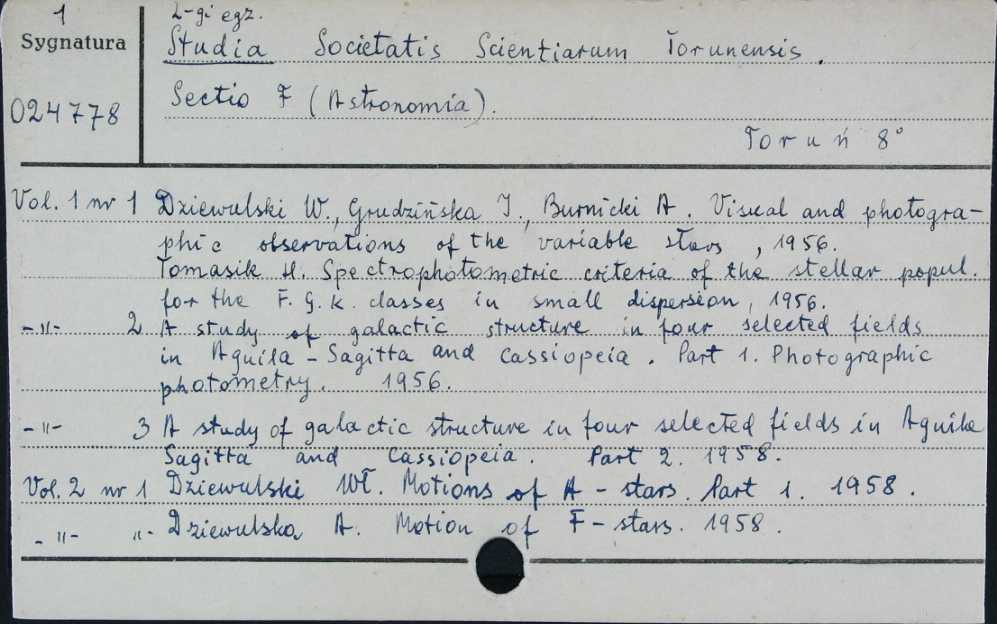 1
Sygnatura
024778
2-gi egz.
Studia Societatis Scientiarum Torunensis.
Sectio F (Astronomia).
Toruń 8°
Vol. 1 nr 1 Dziewulski W., Grudzińska I., Burnicki A. Visual and photogra-
phic observations of the variable stars, 1956.
Tomasik H. Spectrophotometric criteria of the stellar popul.
for the F. G. K. classes in small dispersion, 1956.
-"- 2 A study of galactic structure in four selected fields
in Aquila - Sagitta and Cassiopeia. Part 1. Photographic
photometry. 1956.
-"- 3 A study of galactic structure in four selected fields in Aquila
Sagitta and Cassiopeia. Part 2. 1958.
Vol. 2 nr 1 Dziewulski Wł. Motions of A - stars. Part 1. 1958.
-"- "- Dziewulska A. Motion of F - stars. 1958